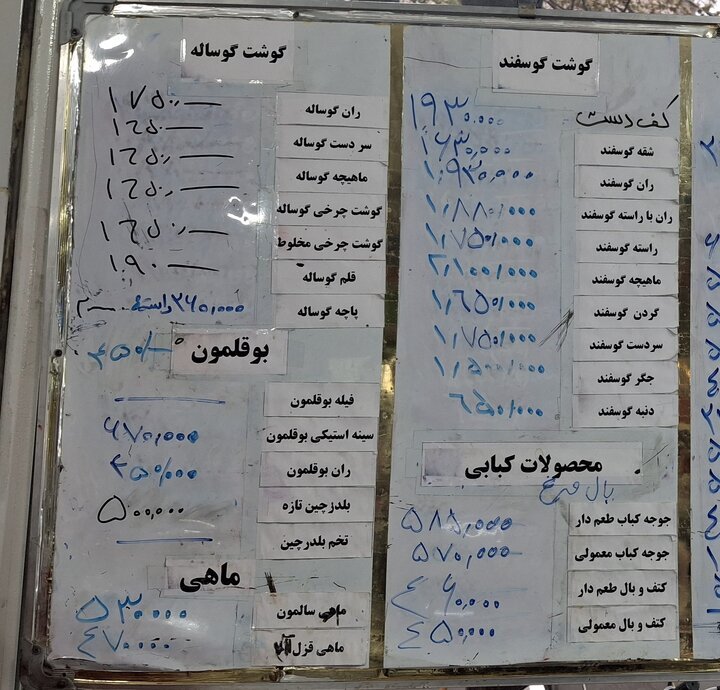 گوشت گوسفند
کف دست ۱۹۳۰,۰۰۰
شقه گوسفند ۱۶۳۰,۰۰۰
ران گوسفند ۱,۹۳۰,۰۰۰
ران با راسته گوسفند ۱,۸۸۰/۰۰۰
راسته گوسفند ۱,۷۵۰/۰۰۰
ماهیچه گوسفند ۲,۱۰۰/۰۰۰
گردن گوسفند ۱,۶۵۰/۰۰۰
سردست گوسفند ۱,۷۵۰/۰۰۰
جگر گوسفند ۱,۵۰۰/۰۰۰
دنبه گوسفند ۶۵۰/۰۰۰
محصولات کبابی
بال مرغ
جوجه کباب طعم دار ۵۸۵,۰۰۰
جوجه کباب معمولی ۵۷۰,۰۰۰
کتف و بال طعم دار ۴۶۰,۰۰۰
کتف و بال معمولی ۴۵۰,۰۰۰
گوشت گوساله
ران گوساله ۱۷۵۰,—
سر دست گوساله ۱۶۵۰—
ماهیچه گوساله ۱۶۵۰,—
گوشت چرخی گوساله ۱۶۵۰,—
گوشت چرخی مخلوط ۱۶۵۰,—
قلم گوساله ۱۹۰—
پاچه گوساله راسته
بوقلمون
فیله بوقلمون —
سینه استیکی بوقلمون ۶۷۰,۰۰۰
ران بوقلمون ۴۵۰/۰۰۰
بلدرچین تازه ۵۰۰,۰۰۰
تخم بلدرچین —
ماهی
ماهی سالمون ۵۳۰,۰۰۰
ماهی قزل آلا ۴۷۰,۰۰۰